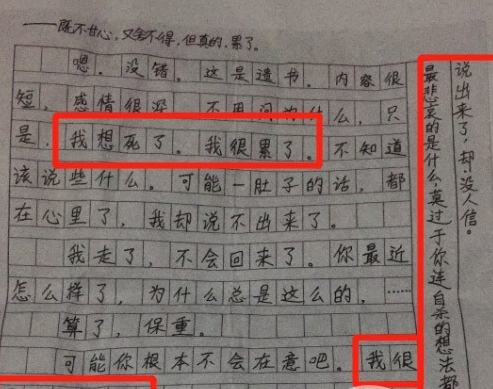 ——既不甘心,又舍不得,但真的,累了。
嗯。没错。这是遗书。内容很
短,感情很深。不用问为什么,只
是,我想死了。我很累了。不知道
该说些什么。可能一肚子的话,都
在心里了,我却说不出来了。
我走了,不会回来了。你最近
怎么样了,为什么总是这么的,……
算了,保重。
可能你根本不会在意吧。我很
最悲哀的是什么,莫过于你连自杀的想法都
说出来了,却没人信。